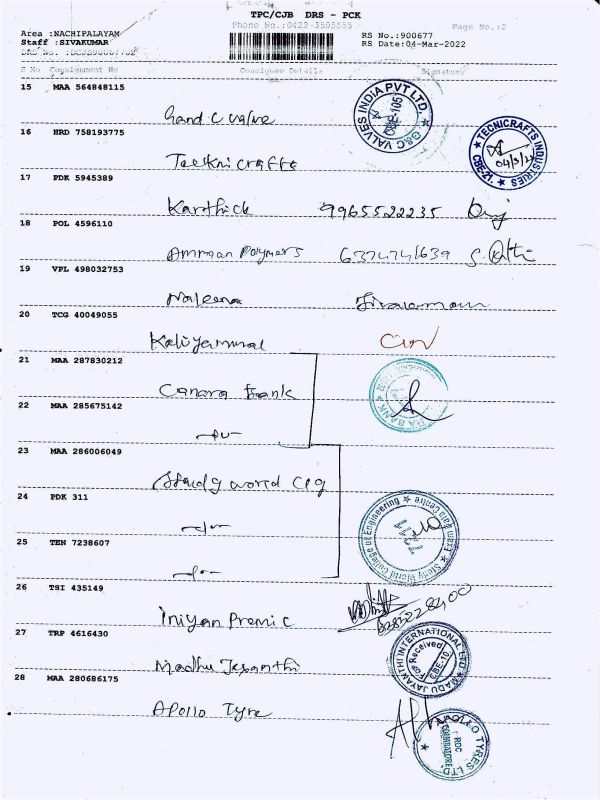 TPC/CJB DRS - PCK
Phone No.:0422-3505555
Page No.:2
Area :NACHIPALAYAM
Staff :SIVAKUMAR
RS No.:900677
RS Date:04-Mar-2022
S No Consignment No Consignee Details Signature
15 MAA 564848115
Gand C Valve
G&C VALVES INDIA PVT LTD CBE-105
16 HRD 758193775
Tecknicrafts
TECNICRAFTS INDUSTRIES CBE-21.
17 PDK 5945389
Karthick 9965522235
18 POL 4596110
Amman Polymers 6374741639
19 VPL 498032753
Naleena
20 TCG 40049055
Kaliyammal
21 MAA 287830212
Canara Bank
22 MAA 285675142
23 MAA 286006049
Study world Clg
24 PDK 311
Study World College of Engineering Exam Cell Centre
25 TEN 7238607
26 TSI 435149
Iniyan Premic
27 TRP 4616430
Madhu Jeyanthi
MADU JAYANTHI INTERNATIONAL LTD For Received CBE-10
28 MAA 280686175
Apollo Tyre
APOLLO TYRES LTD. RDC COIMBATORE